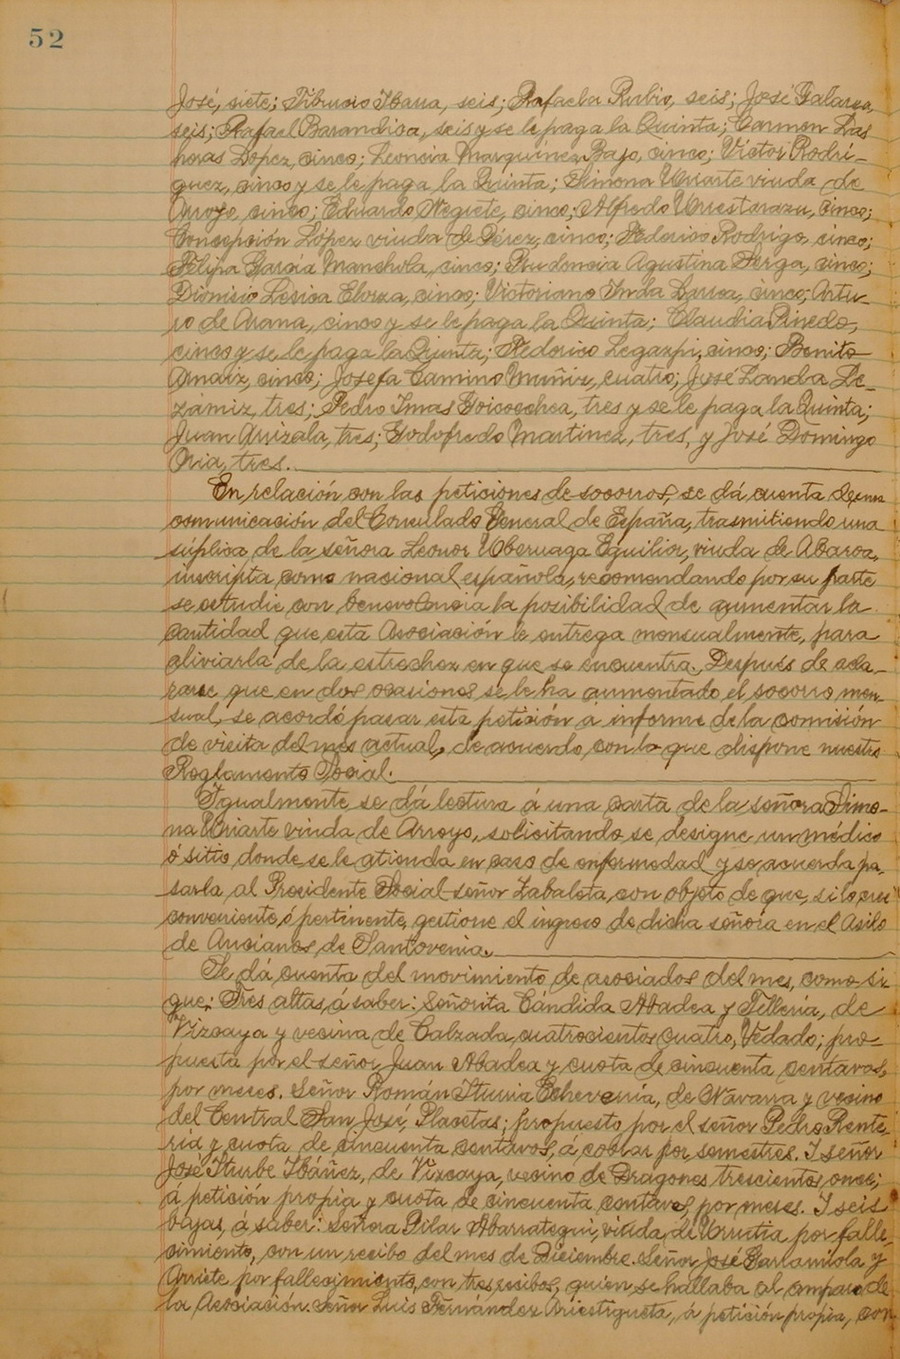 52
José, siete; Tiburcio Ibarra, seis; Rafaela Rubio, seis; José Galarza,
seis; Rafael Barandica, seis y se le paga la Quinta; Carmen Las
heras López, cinco; Leoncia Marquínez Bajo, cinco; Víctor Rodrí-
guez, cinco y se le paga la Quinta; Simona Uriarte viuda de
Arroyo, cinco; Eduardo Negrete, cinco; Alfredo Urrestarazu, cinco;
Concepción López viuda de Pérez, cinco; Federico Rodrigo, cinco;
Felipa García Manchola, cinco; Prudencia Agustina cinco;
Dionisio Lesica Elorza, cinco; Victoriano Inda Larrea, cinco; Artu-
ro de Arana, cinco y se le paga la Quinta; Claudia Pinedo,
cinco y se le paga la Quinta; Federico Legazpi, cinco; Benito
Arnaiz, cinco; Josefa Camino Muñiz, cuatro; José Landa Le-
zámiz, tres; Pedro Imas Goicoechea, tres y se le paga la Quinta;
Juan Arrizala, tres; Godofredo Martinez, tres, y José Domingo
Oria, tres.
En relación con las peticiones de socorros, se dá cuenta de una
comunicación del Consulado General de España, trasmitiendo una
súplica de la señora Leonor Uberuaga Eguilior, viuda de Abaroa,
inscripta como nacional española, recomendando por su parte
se estudie con benevolencia la posibilidad de aumentar la
cantidad que esta Asociación le entrega mensualmente, para
aliviarla de la estrechez en que se encuentra. Después de acla-
rarse que en dos ocasiones se le ha aumentado el socorro men-
sual, se acordó pasar esta petición a informe de la comisión
de visita del mes actual, de acuerdo con lo que dispone nuestro
Reglamento Social.
Igualmente se dá lectura á una carta de la señora Simo-
na Uriarte viuda de Arroyo, solicitando se designe un médico
ó sitio donde se le atienda en caso de enfermedad y se acuerda pa-
sarla al Presidente Social señor Zabaleta, con objeto de que, si lo cree
conveniente ó pertinente, gestione el ingreso de dicha señora en el Asilo
de Ancianos de Santovenia.
Se dá cuenta del movimiento de asociados del mes, como si-
gue: Tres altas, á saber: Señorita Cándida Abadea y Tellería, de
Vizcaya y vecina de Calzada cuatrocientos cuatro, Vedado; pro-
puesta por el señor Juan Abadea y cuota de cincuenta centavos,
por meses. Señor Román Iturria Echeverría, de Navarra y vecino
del Central San José, Placetas; propuesto por el señor Pedro Rente-
ría y cuota de cincuenta centavos, á cobrar por semestres. Y señor
José Iturbe Ibáñez, de Vizcaya, vecino de Dragones trescientos once;
á petición propia y cuota de cincuenta centavos, por meses. Y seis
bajas, á saber: señora Pilar Abarrategui, viuda de Urrutia por falle-
cimiento, con un recibo del mes de Diciembre. Señor José Garramiola y
Arriete por fallecimiento, con tres recibos, quien se hallaba al amparo de
la Asociación. Señor Luis Fernández Ariestigueta, á petición propia, con